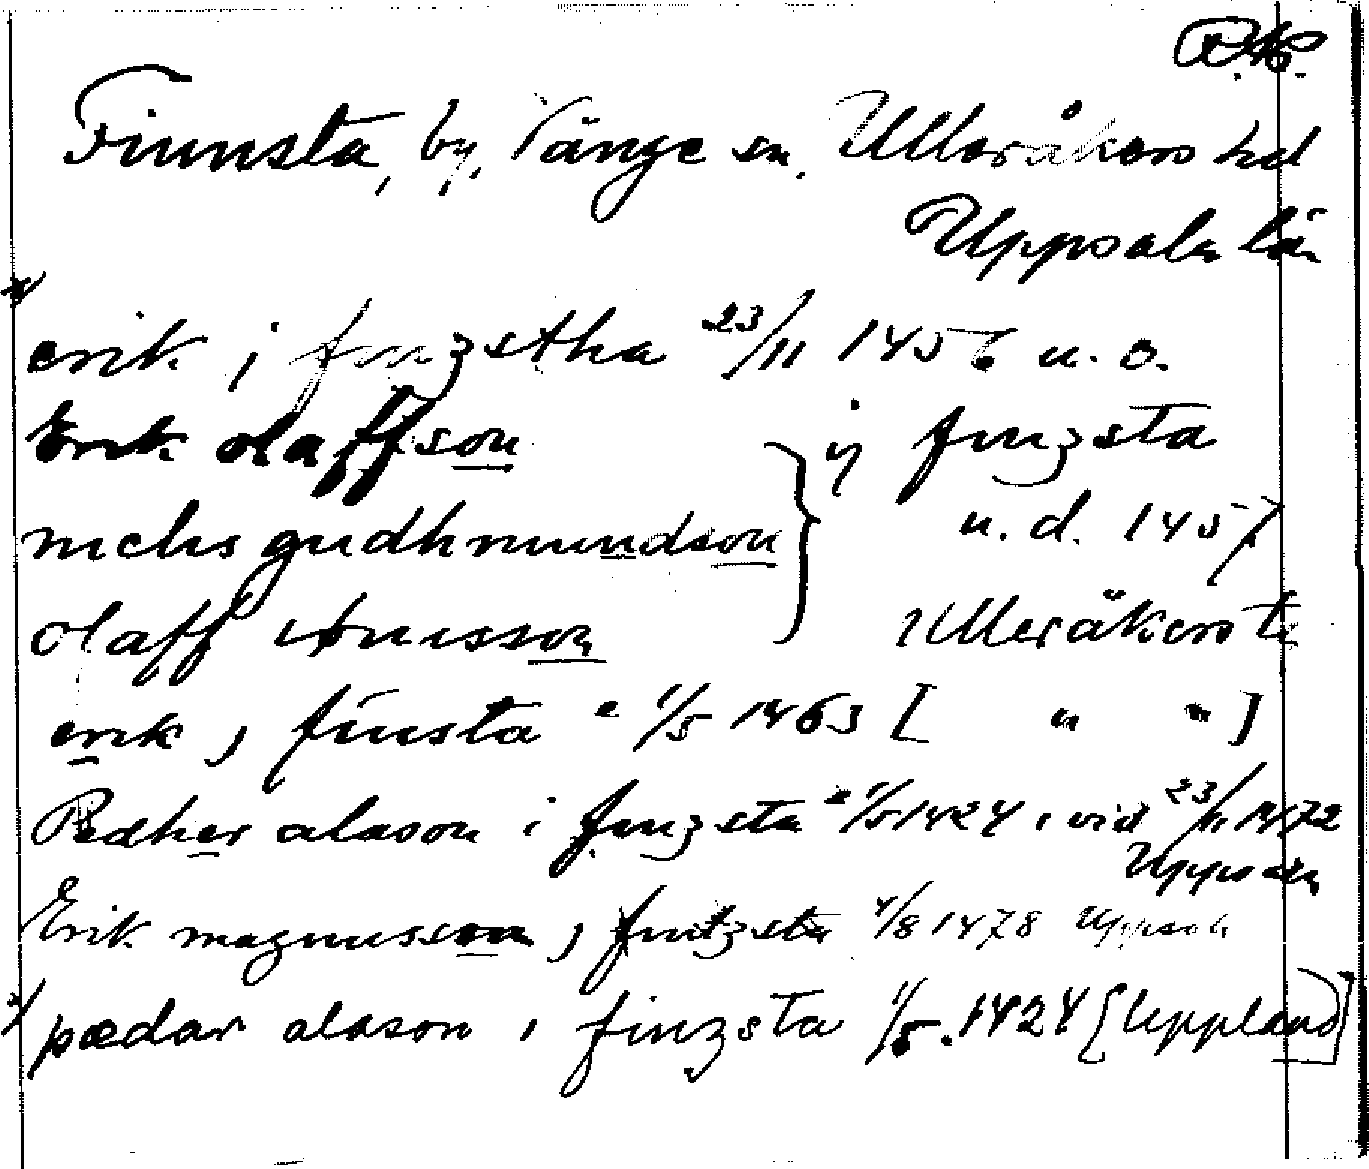 Finnsta, by, Vänge sn. Ulleråkers hd
Uppsala län
erik j finzstha 23/11 1456 u. o.
Erik olaffson
ij finzsta
niclis gudhmundson
u. d. 1457
olaff jønisson
Ulleråkers te
erik j finsta e 1/5 1463 [ " " ]
Pædher olason i finzsta e 1/5 1424, vid 23/11 1472
Uppsala
Erik magnusson j fintzsta 4/8 1478 Uppsala
2/ pædar olason i finzsta 1/5. 1424 [Uppland]